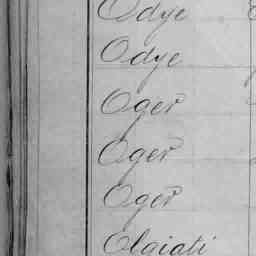 Odye
Odye
Oger
Oger
Oger
Olgiati